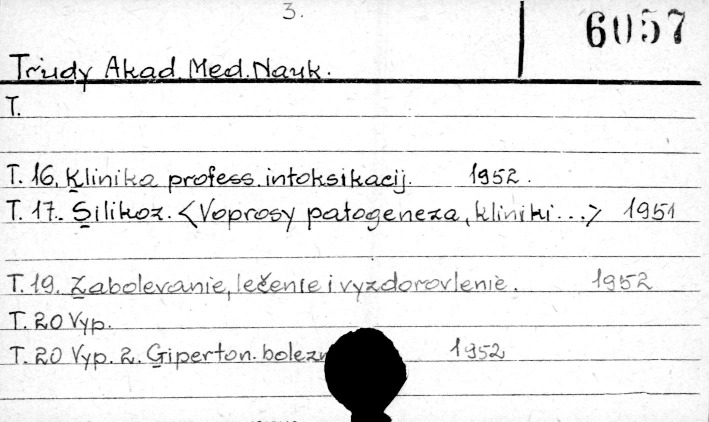 3.
6057
Trudy Akad. Med. Nauk.
T.
T. 16. Klinika profess. intoksikacij. 1952.
T. 17. Silikoz. <Voprosy patogeneza, kliniki...> 1951
T. 19. Zabolevanie, lečenie i vyzdorovlenie. 1952
T. 20 Vyp.
T. 20 Vyp. 2. Giperton. 1952